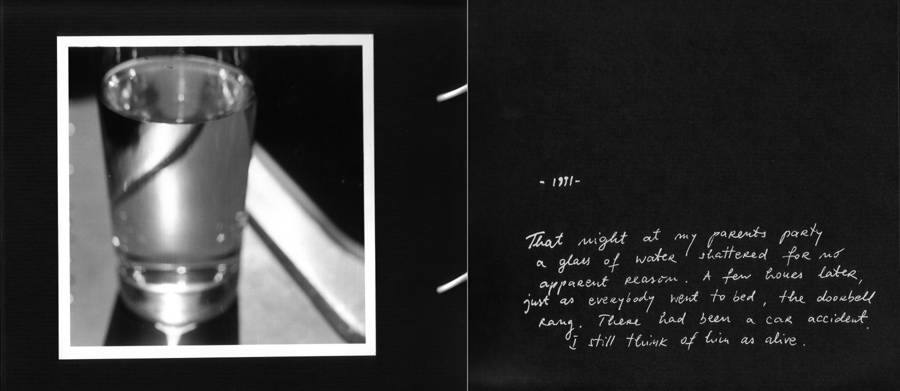 - 1991-
That night at my parents party
a glass of water shattered for no
apparent reason. A few hours later,
just as everybody went to bed, the doorbell
rang. There had been a car accident.
I still think of him as alive.